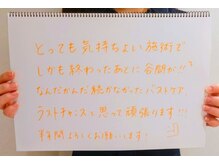 とっても気持ちよい施術で
しかも終わったあとに谷間が!!!
なんだかんだ続かなかったバストケア、
ラストチャンスと思って頑張ります!!!
半年間よろしくお願いします!